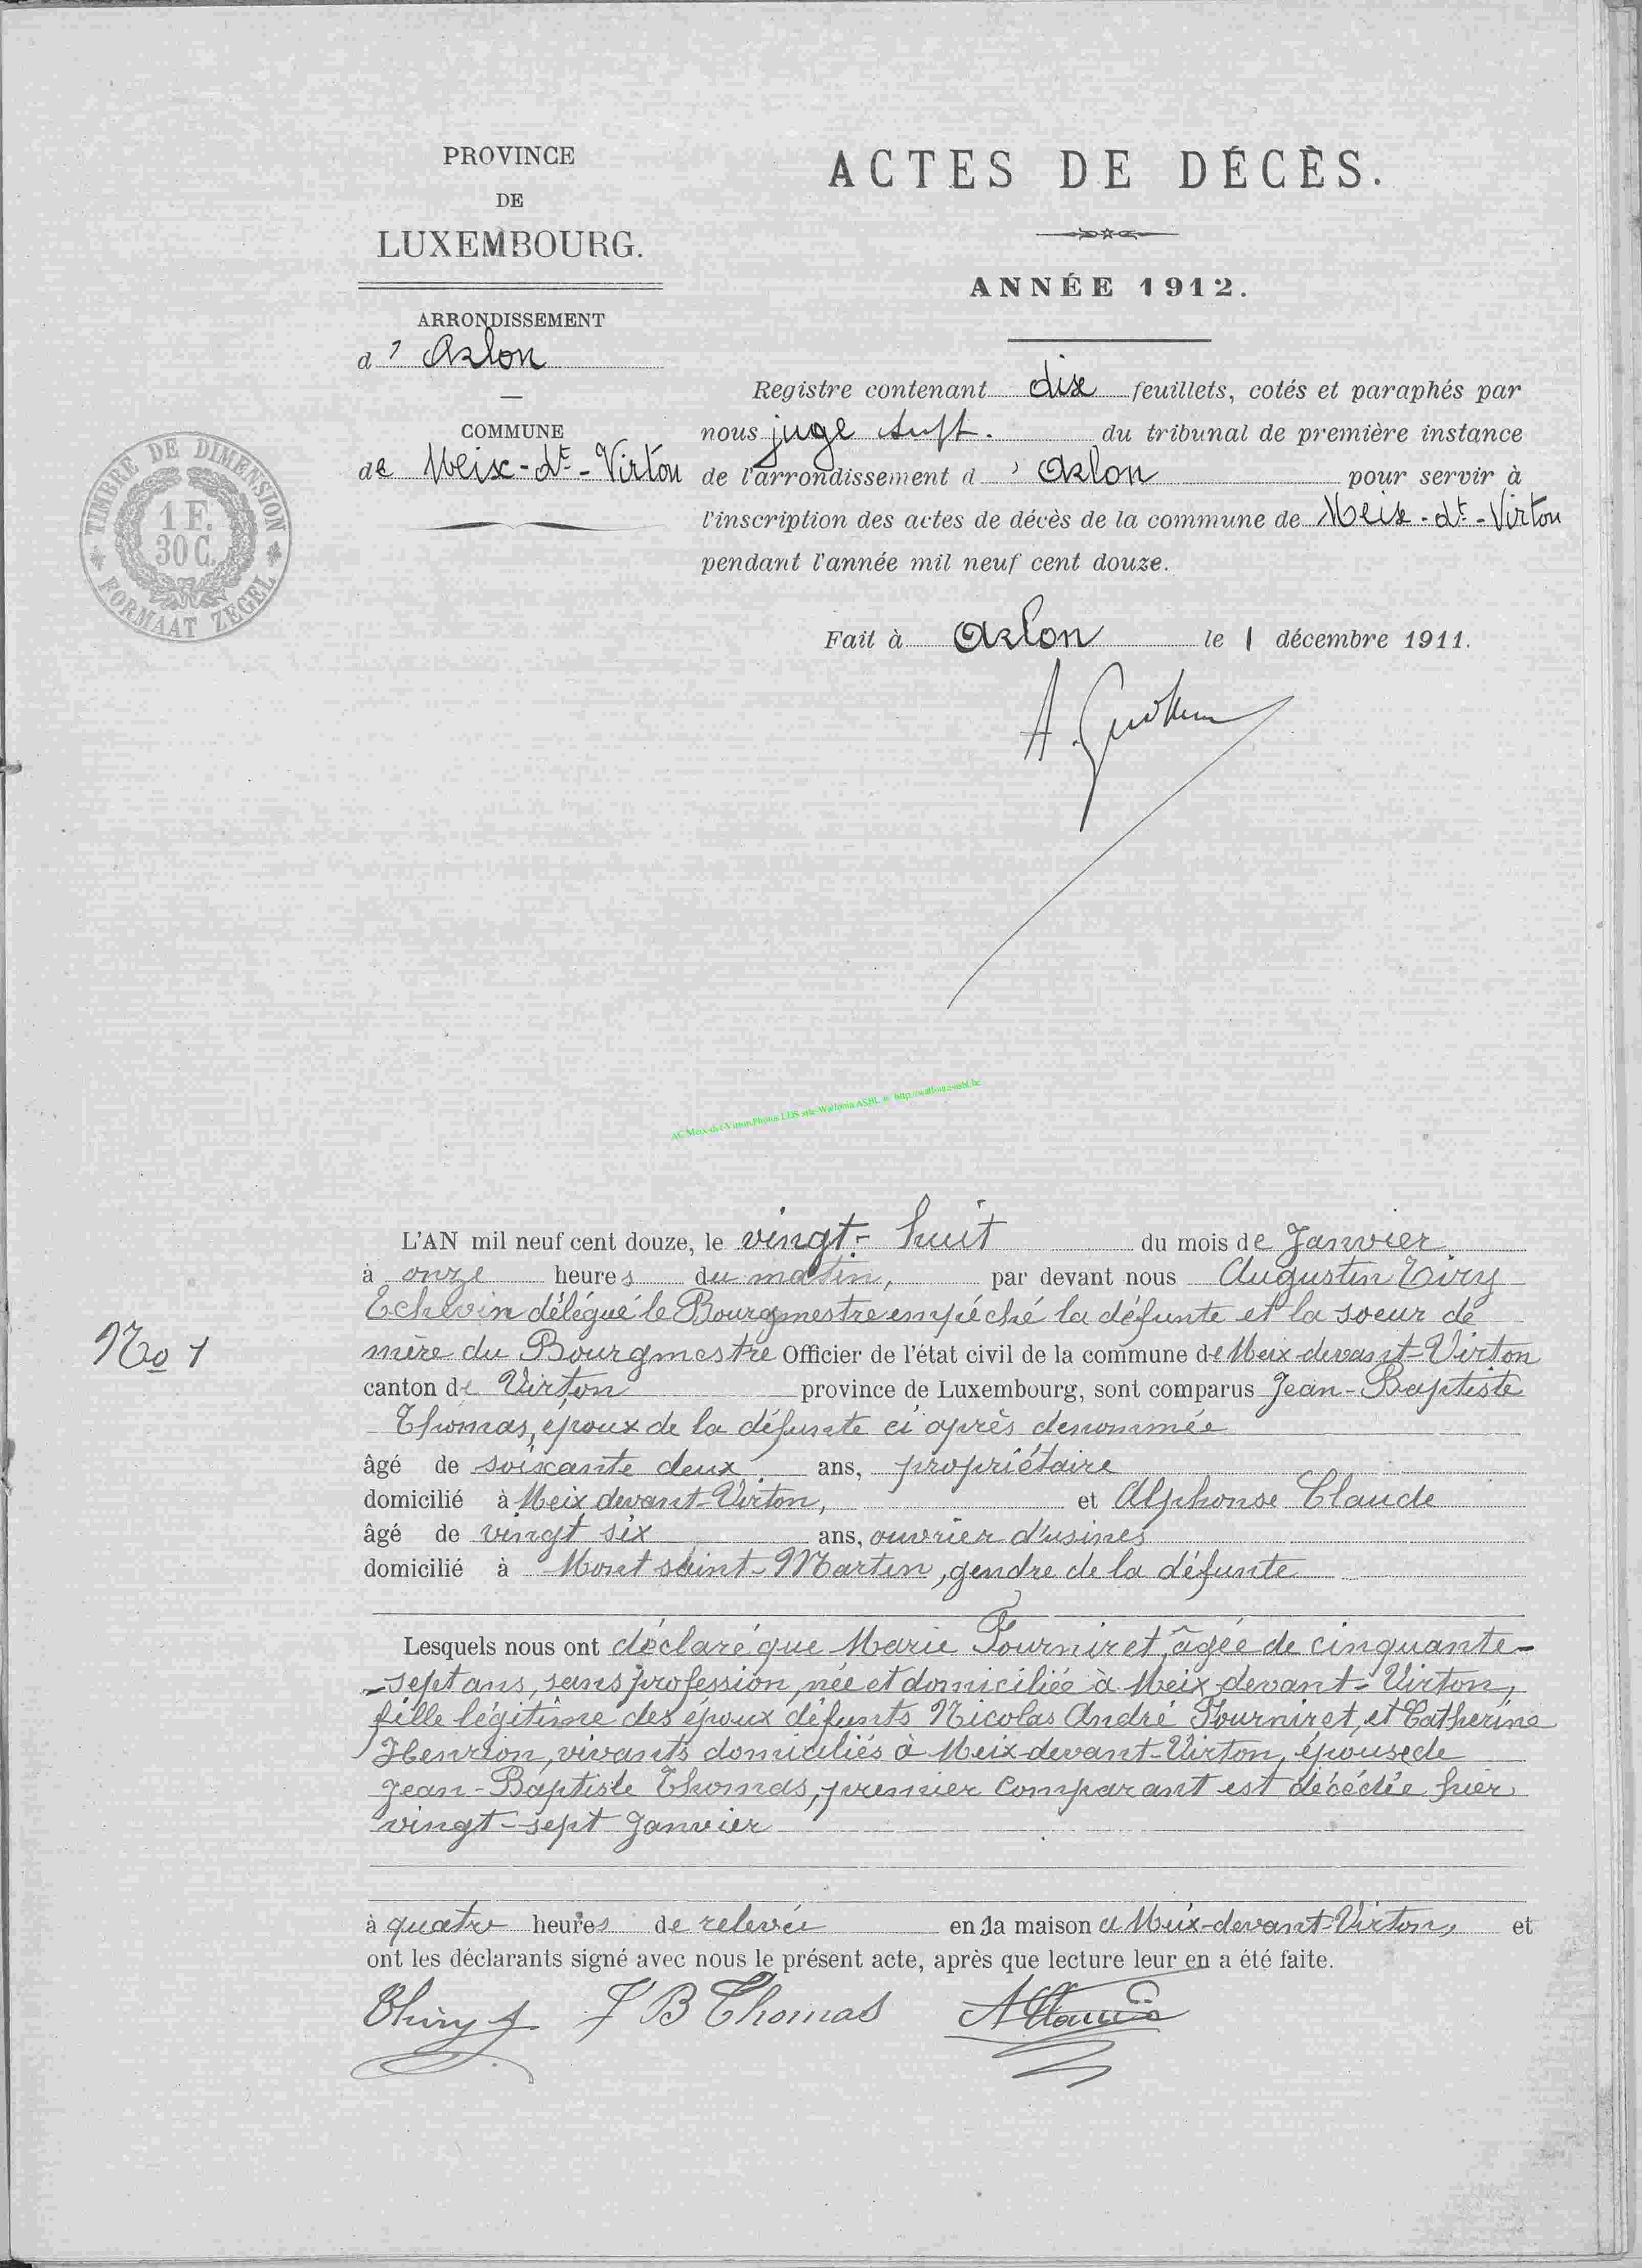 PROVINCE
DE
LUXEMBOURG.
ARRONDISSEMENT
d' Arlon
COMMUNE
de Meix-dt-Virton
TIMBRE DE DIMENSION
1 F.
30 C.
FORMAAT ZEGEL
ACTES DE DÉCÈS.
ANNÉE 1912.
Registre contenant dix feuillets, cotés et paraphés par
nous juge du tribunal de première instance
de l'arrondissement d'Arlon pour servir à
l'inscription des actes de décès de la commune de Meix-dt-Virton
pendant l'année mil neuf cent douze.
Fait à Arlon le 1 décembre 1911.
No 1
L'AN mil neuf cent douze, le vingt-huit du mois de Janvier
à onze heures du matin, par devant nous Augustin Tiry
Echevin délégué le Bourgmestre empêché la défunte et la soeur de
mère du Bourgmestre Officier de l'état civil de la commune de Meix-devant-Virton
canton de Virton province de Luxembourg, sont comparus Jean-Baptiste
Thomas, époux de la défunte ci après denommée
âgé de soixante deux ans, propriétaire
domicilié à Meix devant-Virton, et Alphonse Claude
âgé de vingt six ans, ouvrier d'usines
domicilié à Mont saint-Martin, gendre de la défunte
Lesquels nous ont déclaré que Marie Fourniret, âgée de cinquante-
-sept ans, sans profession, née et domiciliée à Meix-devant-Virton,
fille légitime des époux défunts Nicolas André Fourniret, et Catherine
Henrion, vivants domiciliés à Meix-devant-Virton, épouse de
Jean-Baptiste Thomas, premier comparant est décédée hier
vingt-sept Janvier
à quatre heures de relevée en la maison à Meix-devant-Virton, et
ont les déclarants signé avec nous le présent acte, après que lecture leur en a été faite.
Thiry A J B Thomas A Claude